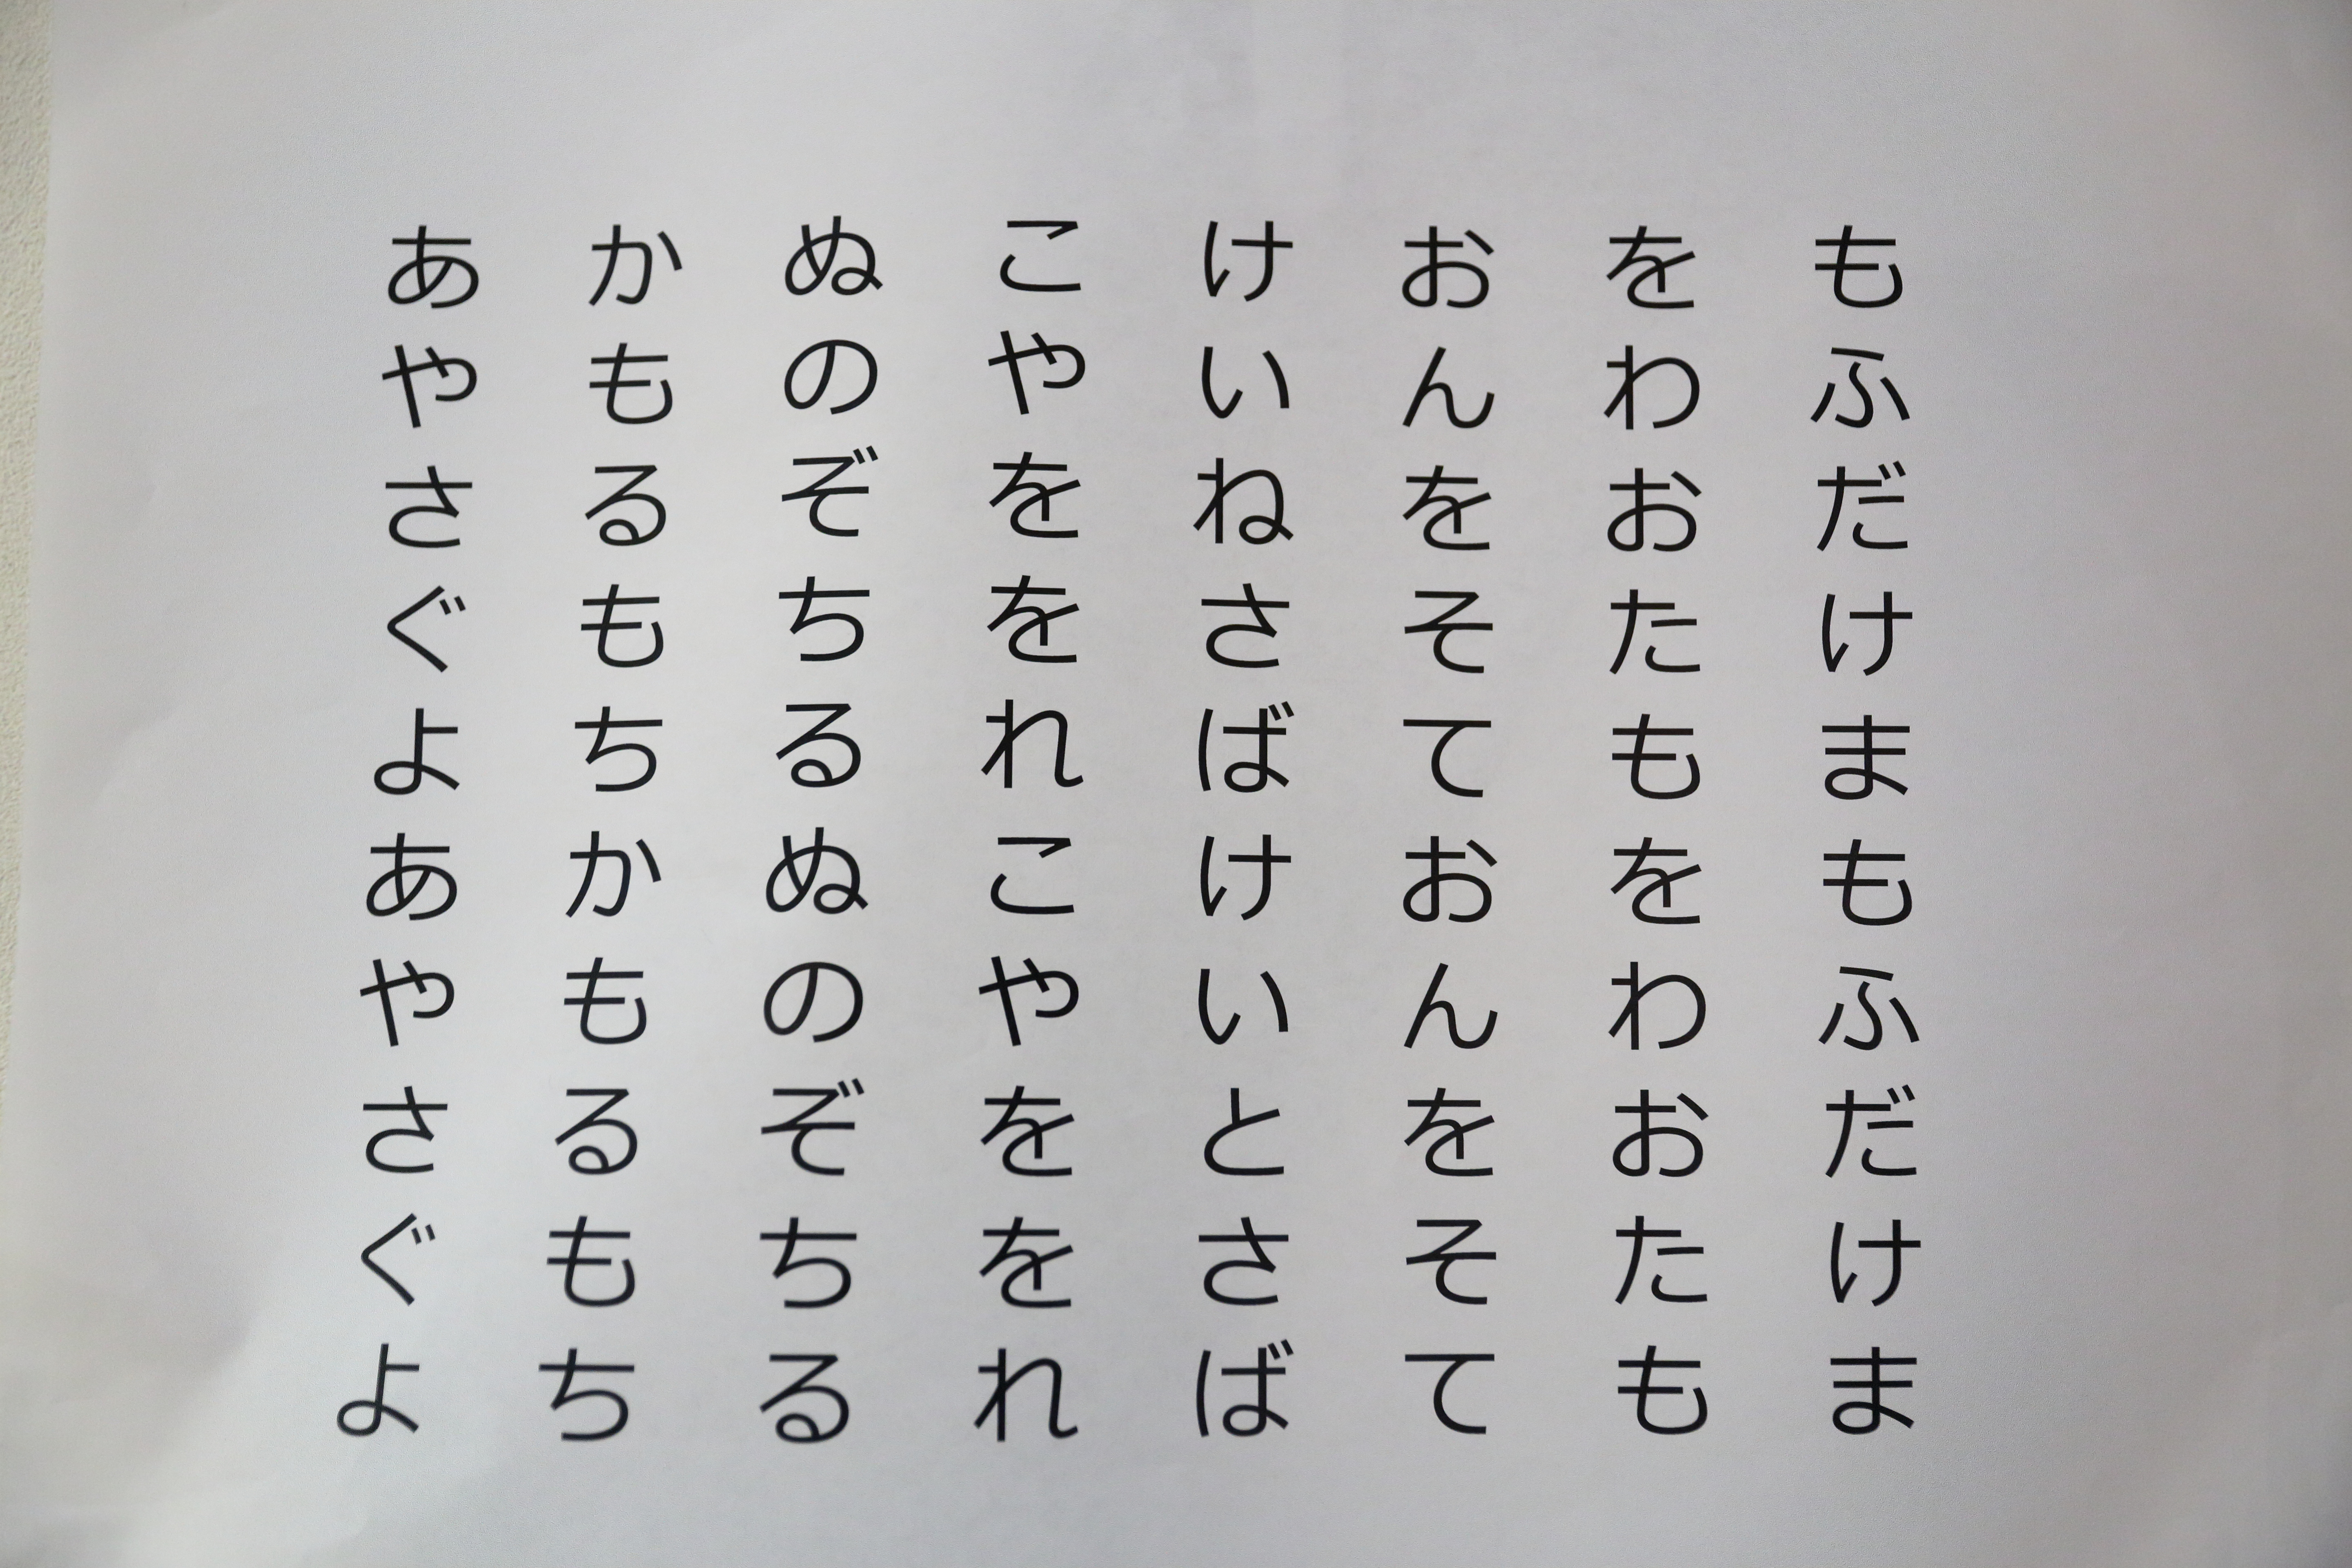 もふだけまもふだけま
をわおたもをわおたも
おんをそておんをそて
けいねさばけいとさば
こやををれこやををれ
ぬのぞちるぬのぞちる
かもるもちかもるもち
あやさぐよあやさぐよ